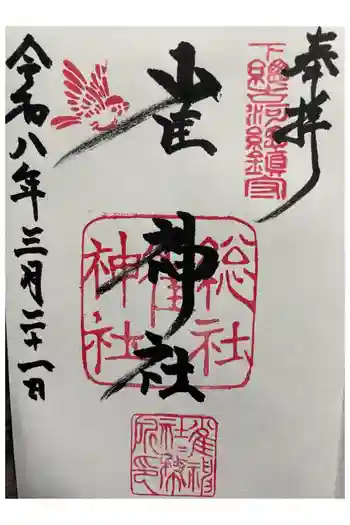 奉拝
下総国河原鎮守
雀神社
総社
雀
神社
雀神社社務所印
令和八年三月二十一日